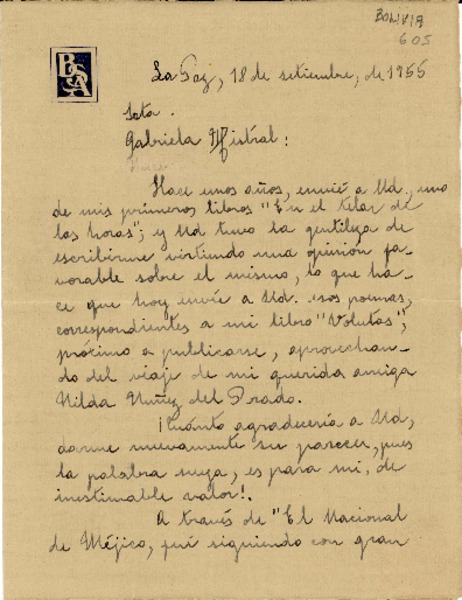 BOLIVIA
605
BSA
La Paz, 18 de setiembre, de 1955
Srta.
Gabriela Mistral:
Hace unos años, envié a Ud., uno
de mis primeros libros "En el telar de
las horas"; y Ud tuvo la gentileza de
escribirme virtiendo una opinión fa-
vorable sobre el mismo, lo que ha-
ce que hoy envíe a Ud. esos poemas,
correspondientes a mi libro "Volutas",
próximo a publicarse, aprovechan-
do del viaje de mi querida amiga
Nilda Nuñez del Prado.
¡Cuánto agradecería a Ud,
darme nuevamente su parecer, pues
la palabra suya, es para mí, de
inestimable valor!.
A través de "El Nacional
de Méjico, fuí siguiendo con gran